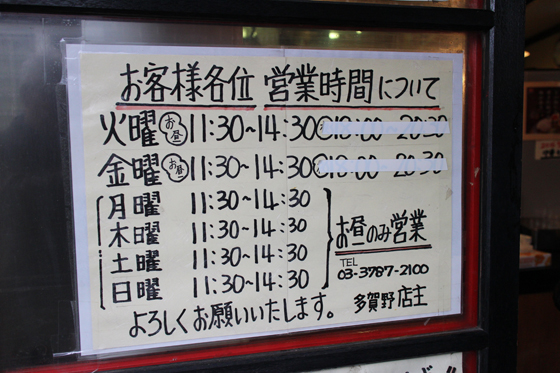 お客様各位 営業時間について
火曜 お昼 11:30~14:30 18:00 20:30
金曜 お昼 11:30~14:30 18:00 20:30
月曜 11:30~14:30
木曜 11:30~14:30
土曜 11:30~14:30
日曜 11:30~14:30
お昼のみ営業
TEL
03-3787-2100
よろしくお願いいたします。 多賀野 店主